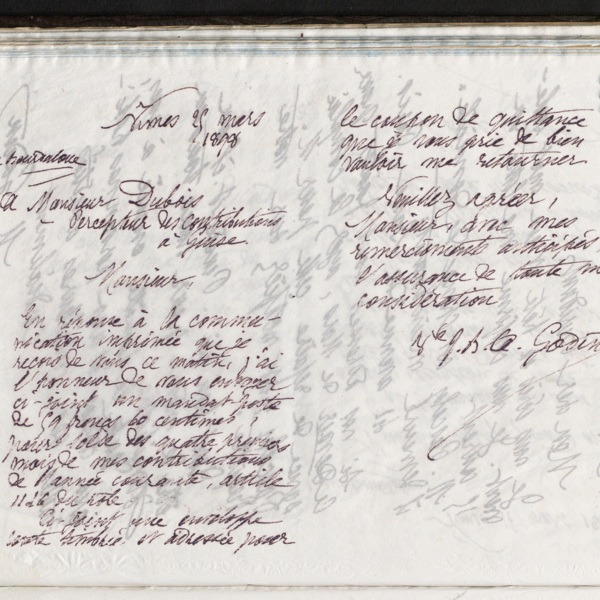 Nîmes 25 mars
1898
Bourdaloue
A Monsieur Dubois
Percepteur des contributions
à Guise.
Monsieur,
En réponse à la commu-
nication imprimée que je
reçois de vous ce matin, j'ai
l'honneur de vous envoyer
ci-joint un mandat poste
de 59 francs 60 centimes,
pour solde des quatre premiers
mois de mes contributions
de l'année courante, article
1126 du rôle.
Ci-joint une enveloppe
toute timbrée et adressée pour
le coupon de quittance
que je vous prie de bien
vouloir me retourner
Veuillez agréer,
Monsieur, avec mes
remerciements anticipés
l'assurance de toute m
considération
Vve J. B. A. Godin